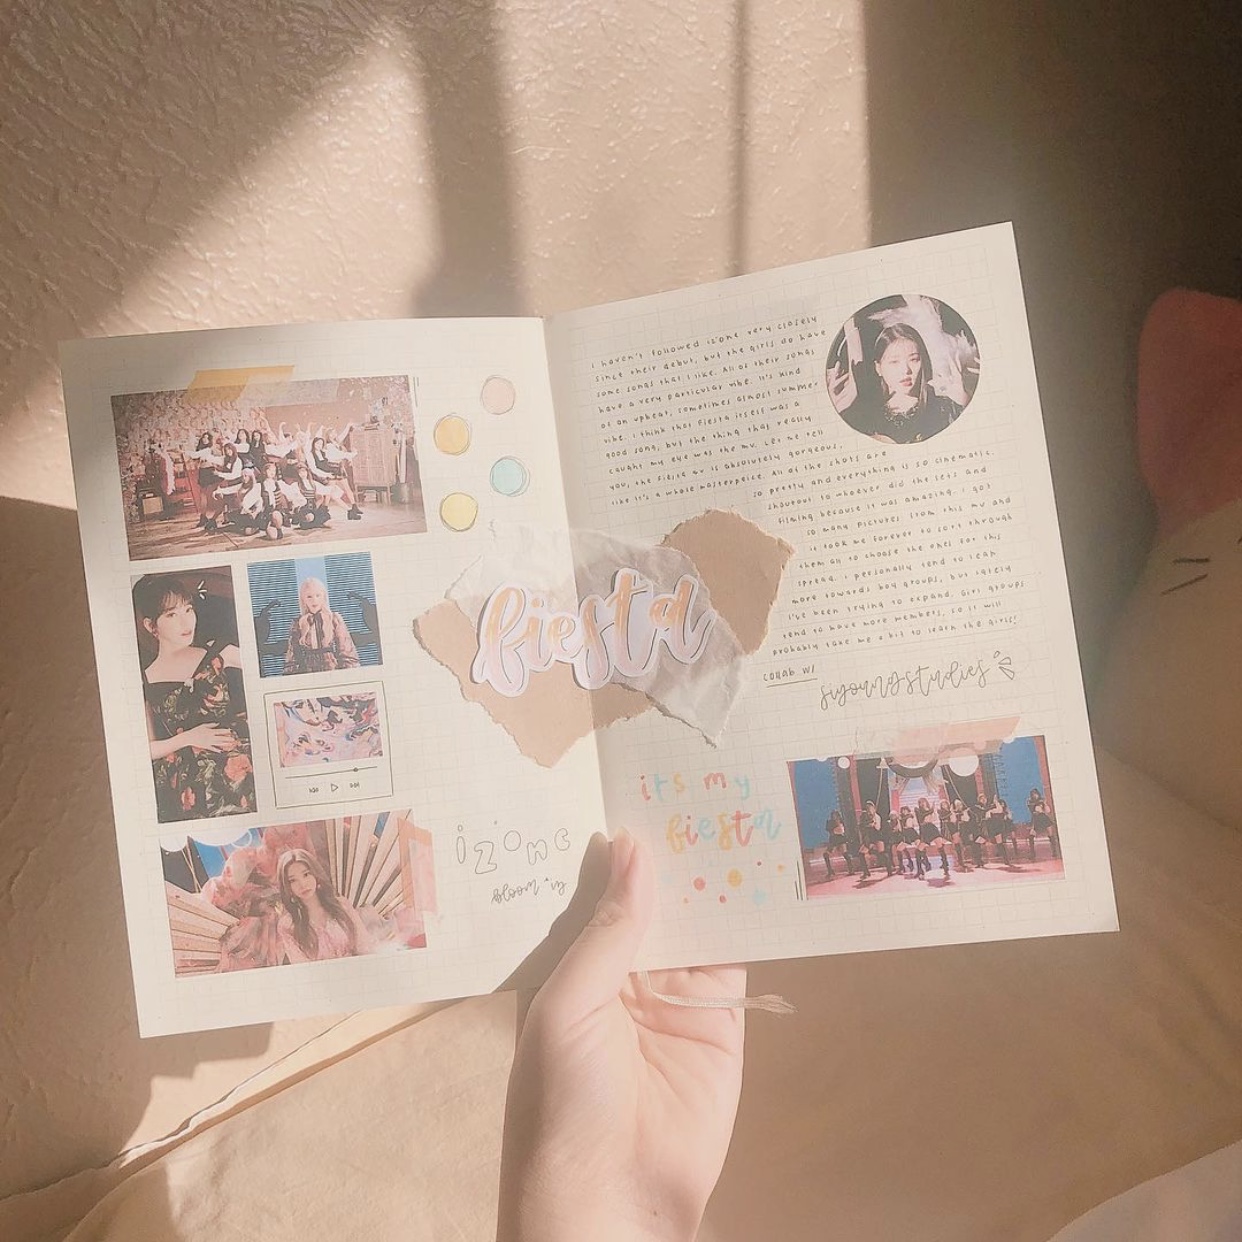 fiesta
iz*one
bloom*iz
i haven't followed iz*one very closely
since their debut, but the girls do have
some songs that i like. All of their songs
have a very particular vibe. It's kind
of an upbeat, sometimes almost summer
vibe. I think that fiesta itself was a
good song, but the thing that really
caught my eye was the mv. Let me tell
you, the fiesta mv is absolutely gorgeous,
like it's a whole masterpeice. All of the shots are
so pretty and everything is so cinematic.
shoutout to whoever did the sets and
filming because it was amazing. I got
so many pictures from this mv and
it took me forever to sort through
them all to choose the ones for this
spread. I personally tend to lean
more towards boy groups, but lately
I've been trying to expand. Girl groups
tend to have more members, so it will
probably take me a bit to learn the girls!
collab w/
siyoungstudies
its my
fiesta